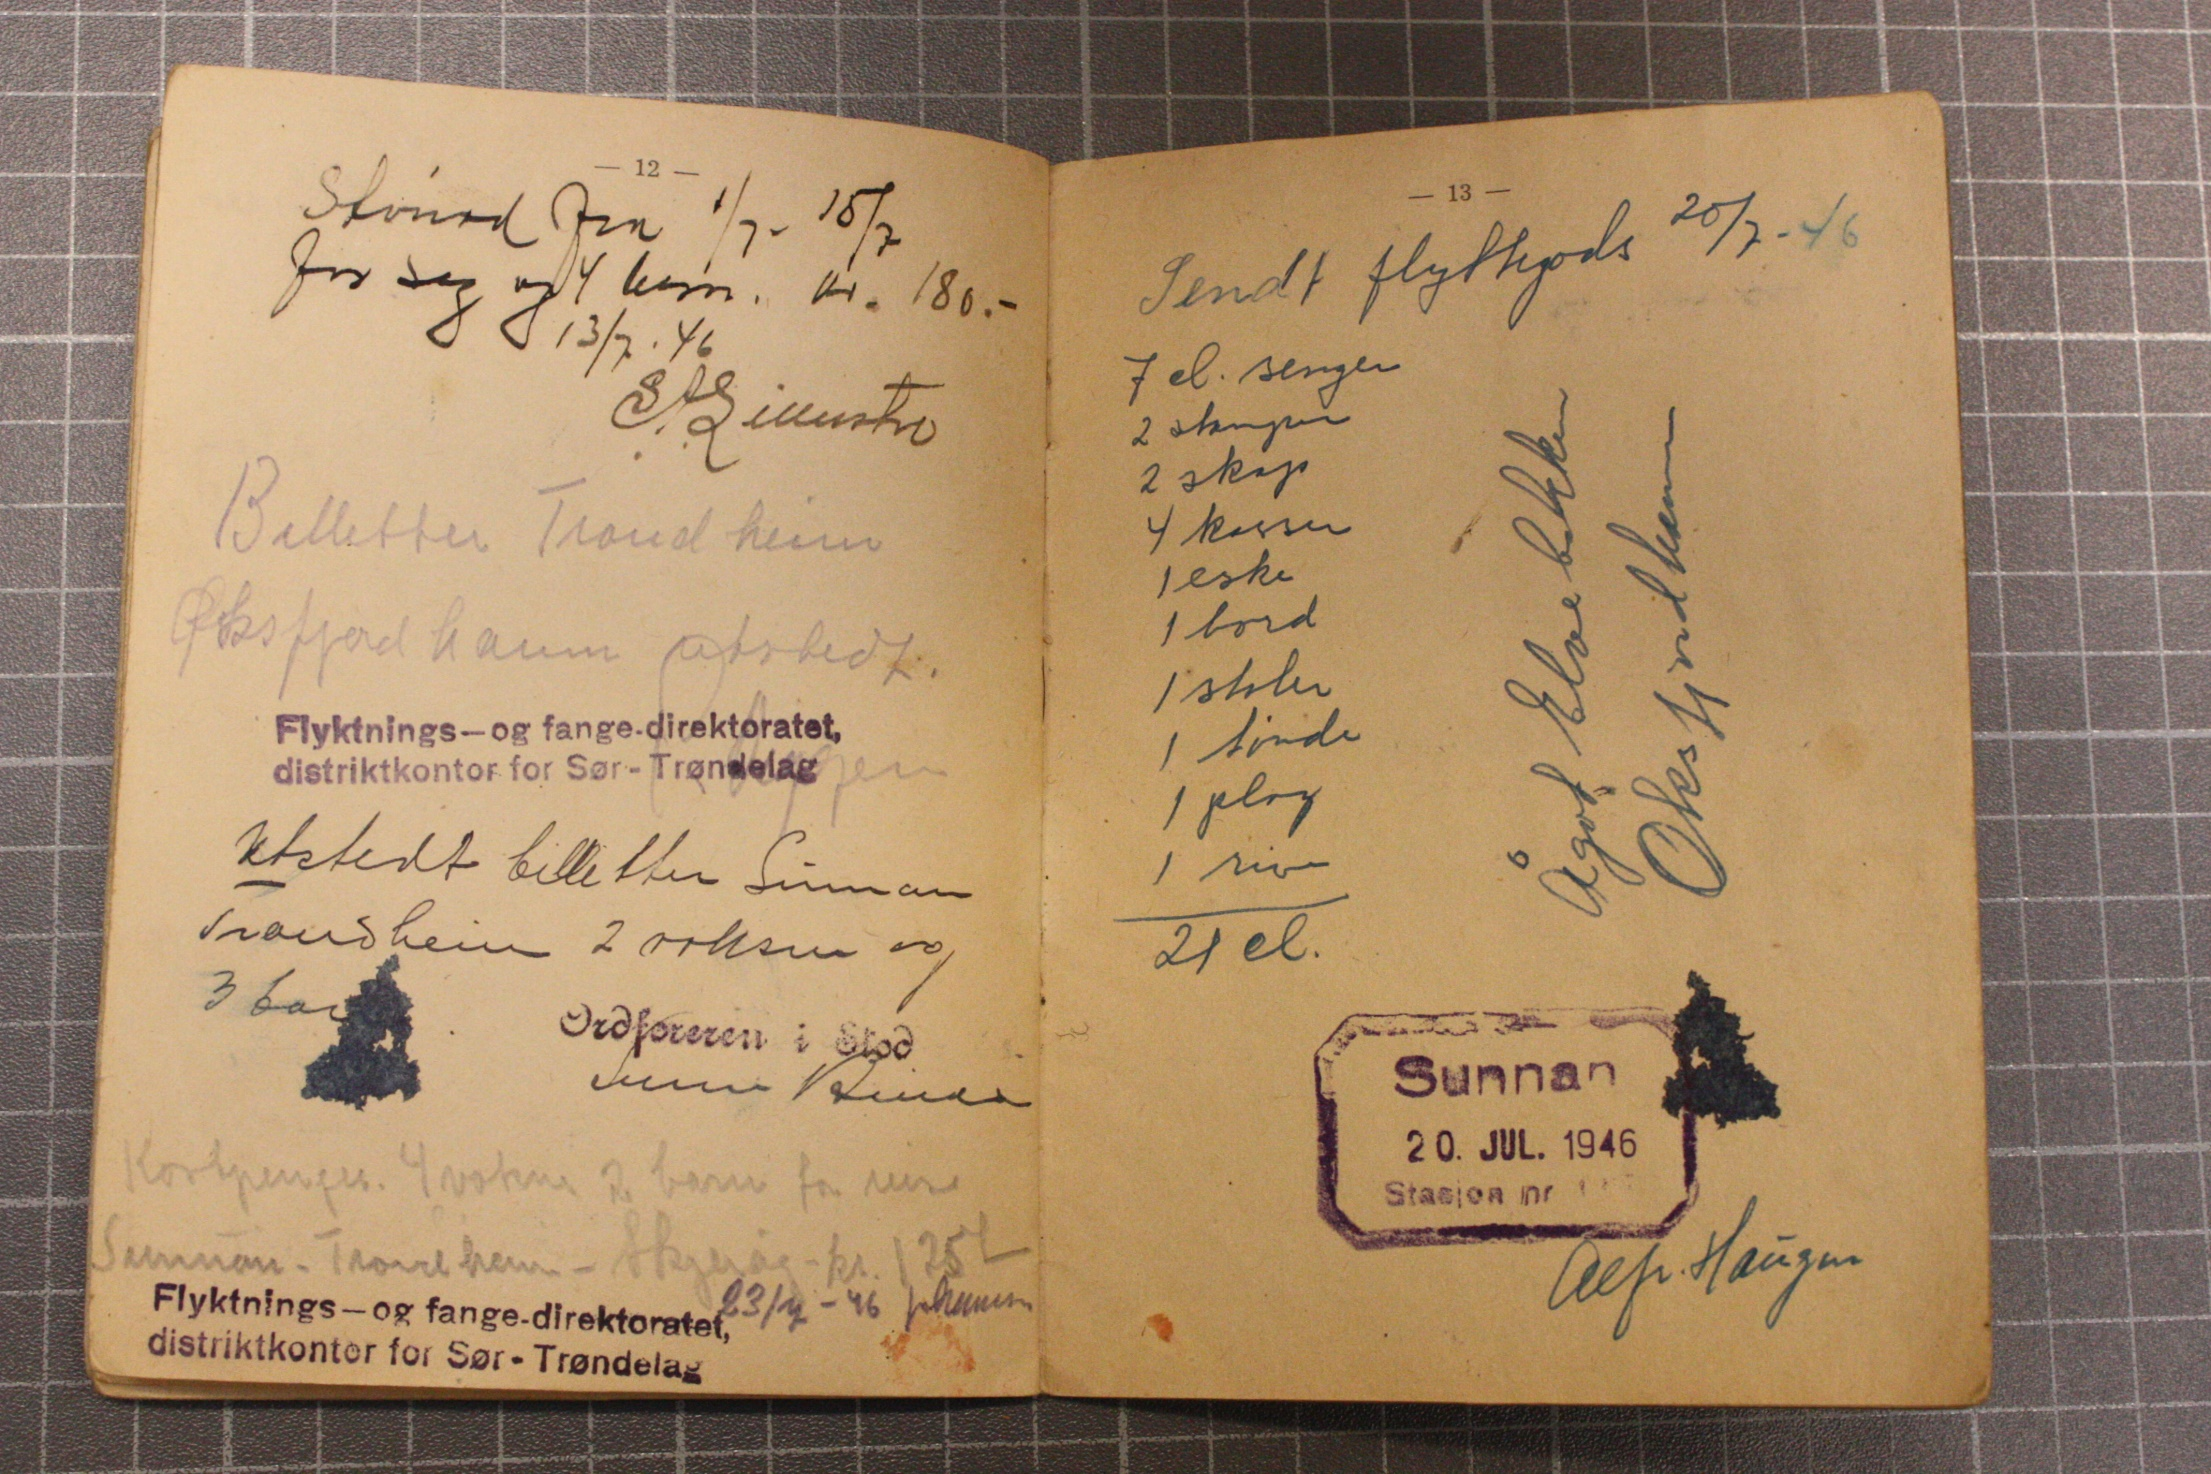 — 12 —
Stønad fra 1/7 - 15/7
for seg og 4 barn. kr. 180.-
13/7. 46
Billetter Trondheim
Øksfjord havn utstedt.
Flyktnings-og fange-direktoratet,
distriktkontor for Sør-Trøndelag
Utstedt billetter Sunnan
Trondheim 2 voksne og
3 bar
Ordføreren i Stod
Kostpenger. 4 voksne 2 barn for reise
Sunnan - Trondheim - - kr. 135
23/7 - 46
Flyktnings-og fange-direktoratet,
distriktkontor for Sør-Trøndelag
— 13 —
Sendt flyttegods 20/7 - 46
7 cl. senger
2 stamper
2 skap
4 kasser
1 eske
1 bord
1 stoler
1 tønde
1 plog
1 rive
21 cl.
Ågot Elvebakken
Øksfjordhavn
Sunnan
20. JUL. 1946
Stasjon nr
Alfr. Haugen